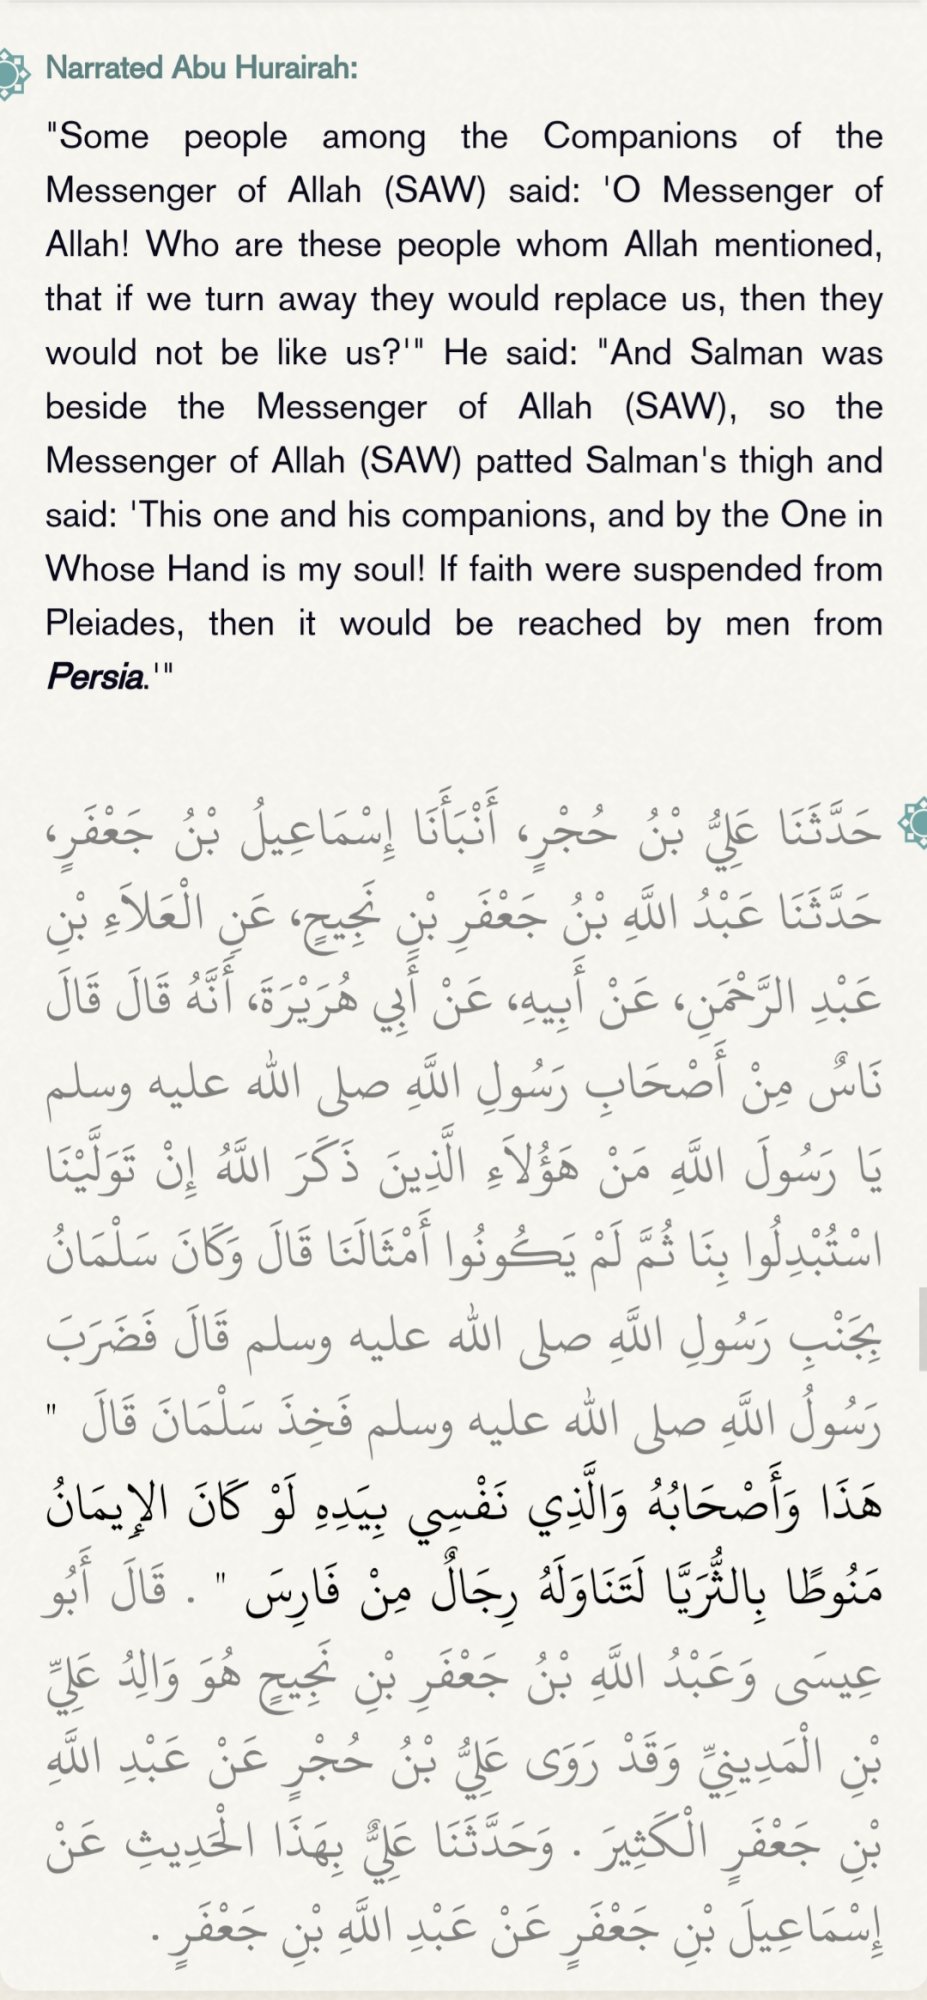 Narrated Abu Hurairah:
"Some people among the Companions of the
Messenger of Allah (SAW) said: 'O Messenger of
Allah! Who are these people whom Allah mentioned,
that if we turn away they would replace us, then they
would not be like us?'" He said: "And Salman was
beside the Messenger of Allah (SAW), so the
Messenger of Allah (SAW) patted Salman's thigh and
said: 'This one and his companions, and by the One in
Whose Hand is my soul! If faith were suspended from
Pleiades, then it would be reached by men from
Persia.'"
حَدَّثَنَا عَلِيُّ بْنُ حُجْرٍ، أَنْبَأَنَا إِسْمَاعِيلُ بْنُ جَعْفَرٍ،
حَدَّثَنَا عَبْدُ اللَّهِ بْنُ جَعْفَرِ بْنِ نَجِيحٍ، عَنِ الْعَلاَءِ بْنِ
عَبْدِ الرَّحْمَنِ، عَنْ أَبِيهِ، عَنْ أَبِي هُرَيْرَةَ، أَنَّهُ قَالَ قَالَ
نَاسٌ مِنْ أَصْحَابِ رَسُولِ اللَّهِ صلى الله عليه وسلم
يَا رَسُولَ اللَّهِ مَنْ هَؤُلاَءِ الَّذِينَ ذَكَرَ اللَّهُ إِنْ تَوَلَّيْنَا
اسْتُبْدِلُوا بِنَا ثُمَّ لَمْ يَكُونُوا أَمْثَالَنَا قَالَ وَكَانَ سَلْمَانُ
بِجَنْبِ رَسُولِ اللَّهِ صلى الله عليه وسلم قَالَ فَضَرَبَ
رَسُولُ اللَّهِ صلى الله عليه وسلم فَخِذَ سَلْمَانَ قَالَ ‏"‏
هَذَا وَأَصْحَابُهُ وَالَّذِي نَفْسِي بِيَدِهِ لَوْ كَانَ الإِيمَانُ
مَنُوطًا بِالثُّرَيَّا لَتَنَاوَلَهُ رِجَالٌ مِنْ فَارِسَ ‏"‏ ‏.‏ قَالَ أَبُو
عِيسَى وَعَبْدُ اللَّهِ بْنُ جَعْفَرِ بْنِ نَجِيحٍ هُوَ وَالِدُ عَلِيِّ
بْنِ الْمَدِينِيِّ وَقَدْ رَوَى عَلِيُّ بْنُ حُجْرٍ عَنْ عَبْدِ اللَّهِ
بْنِ جَعْفَرٍ الْكَثِيرَ ‏.‏ وَحَدَّثَنَا عَلِيٌّ بِهَذَا الْحَدِيثِ عَنْ
إِسْمَاعِيلَ بْنِ جَعْفَرٍ عَنْ عَبْدِ اللَّهِ بْنِ جَعْفَرٍ ‏.‏